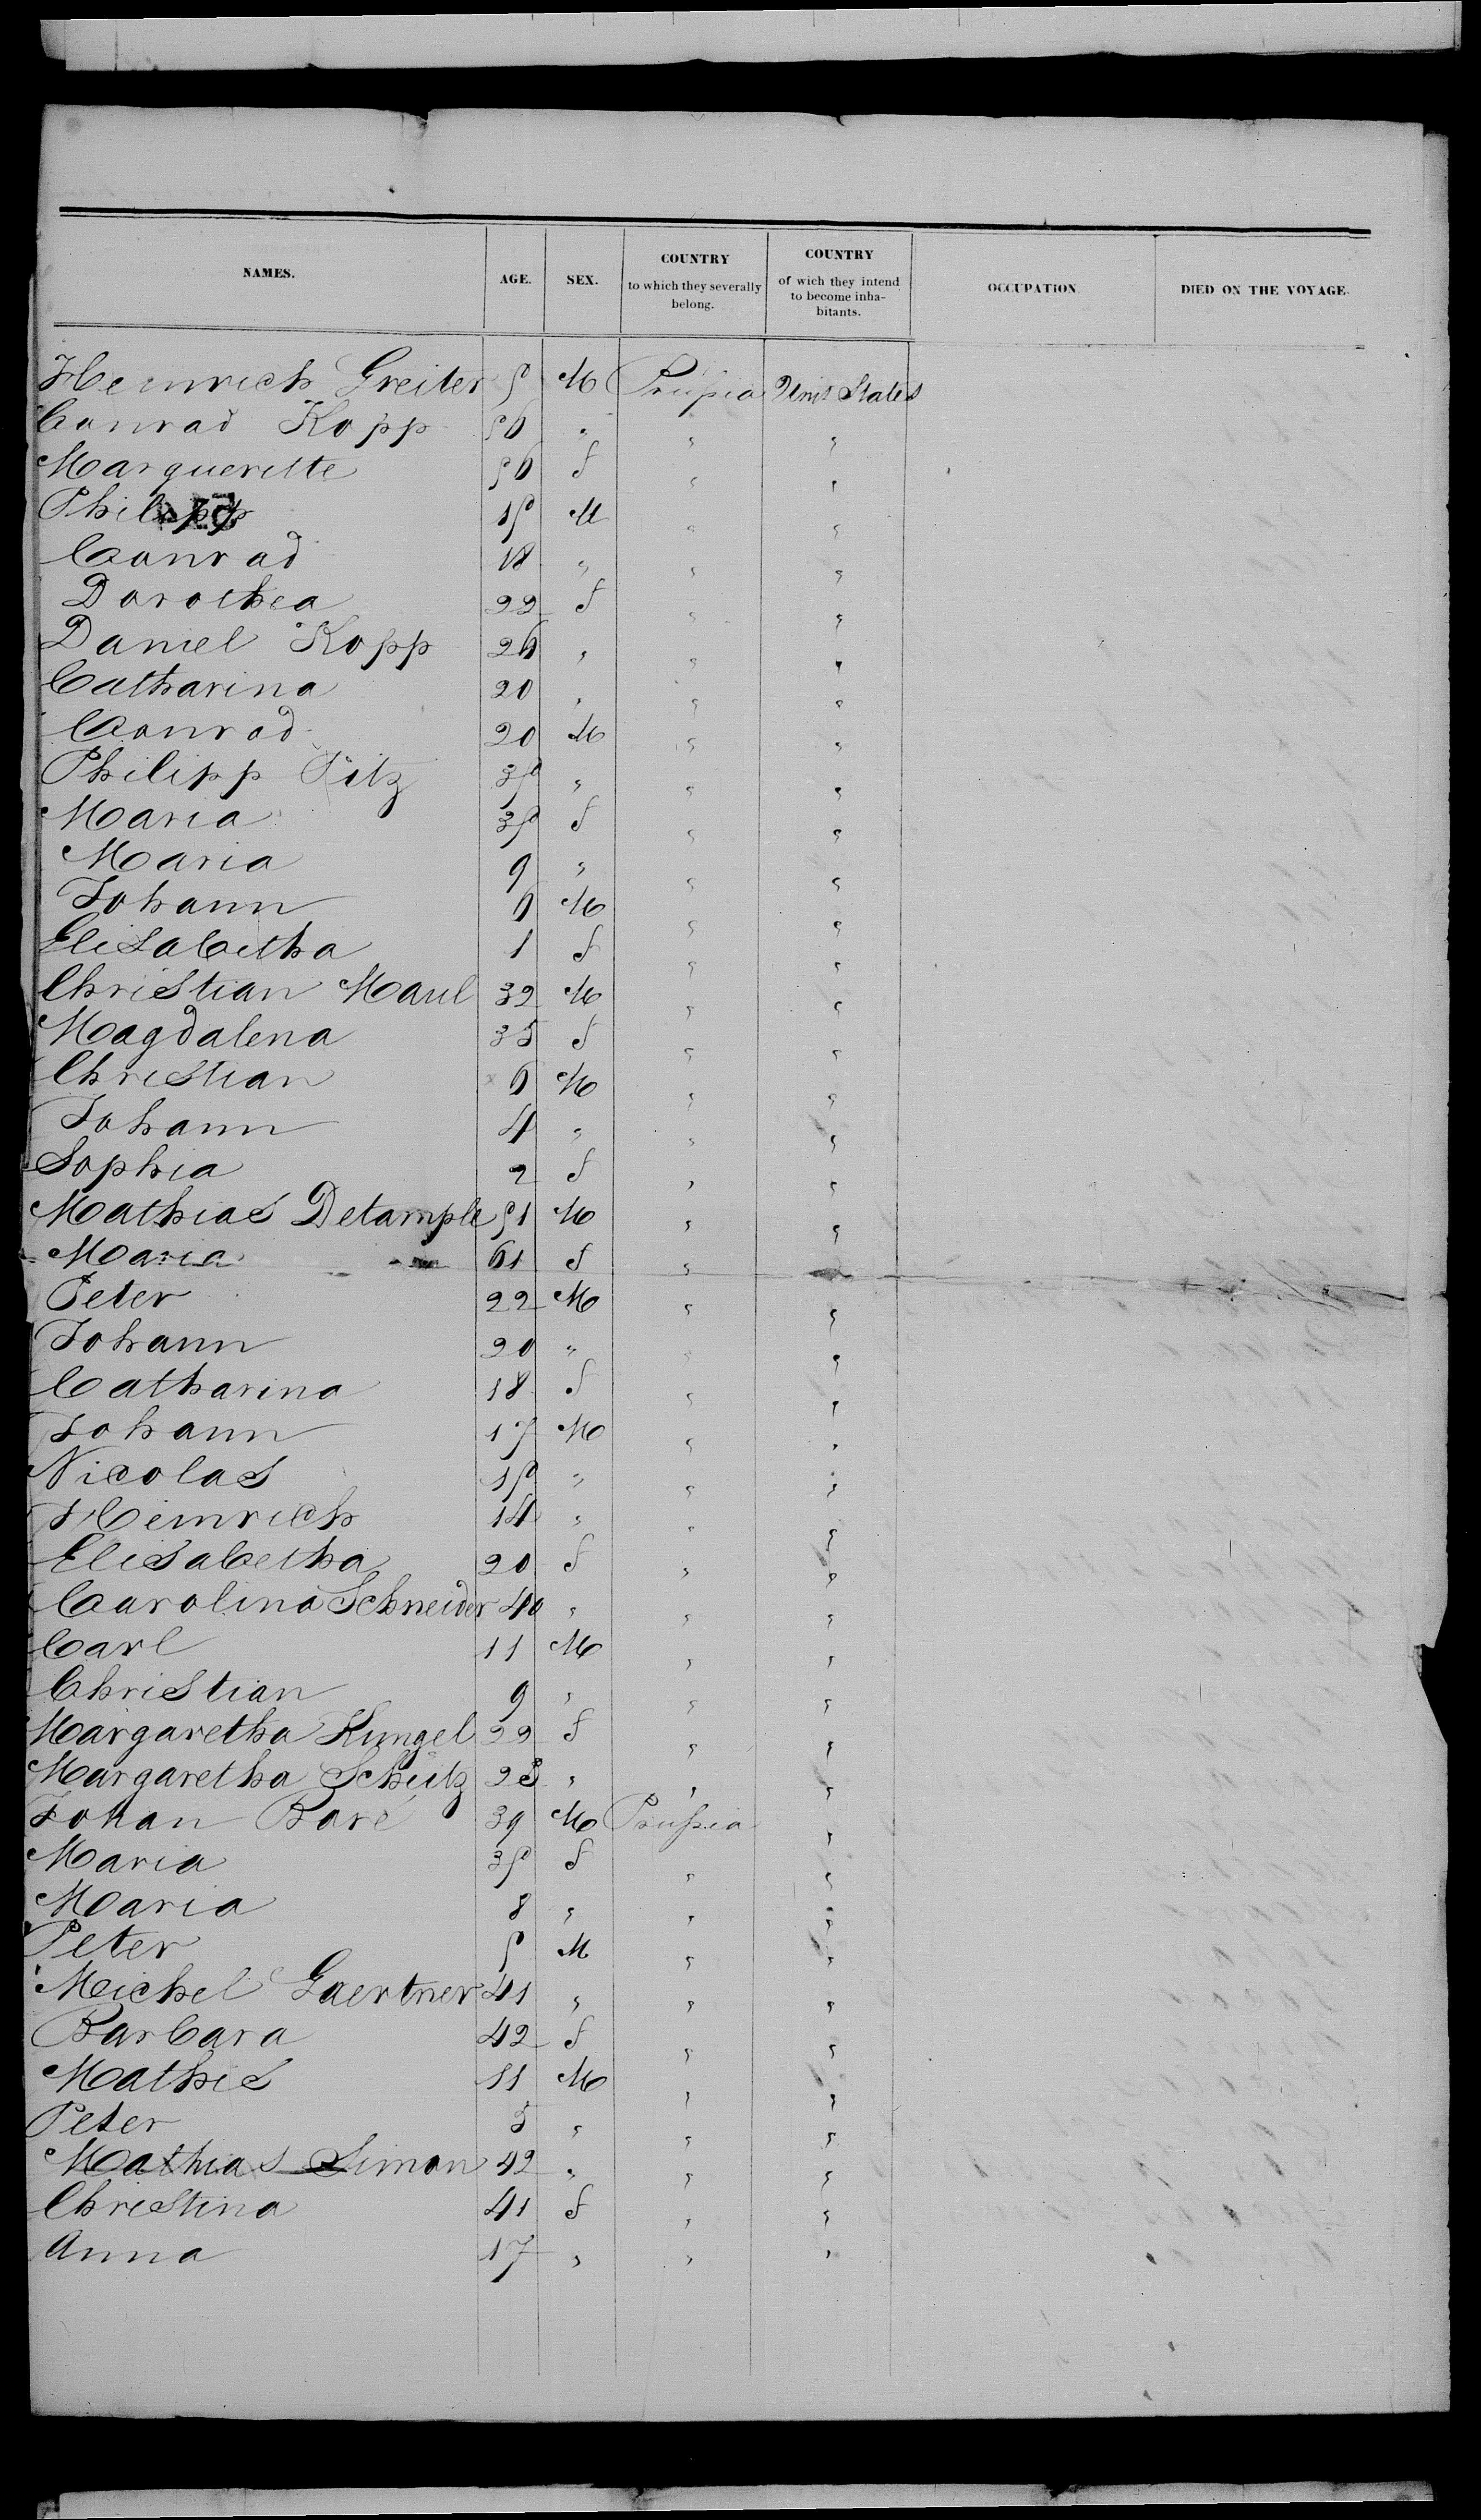 NAMES. AGE. SEX. COUNTRY to which they severally belong. COUNTRY of wich they intend to become inhabitants. OCCUPATION. DIED ON THE VOYAGE.
Heinrich Greiter 5 M Prussia Unit States
Conrad Kopp 56 " " "
Margueritte 56 f " "
Philipp 15 M " "
Conrad 18 " " "
Dorothea 22 f " "
Daniel Kopp 26 " " "
Catharina 20 " " "
Conrad 20 M " "
Philipp Titz 35 " " "
Maria 35 f " "
Maria 9 " " "
Johann 6 M " "
Elisabetha 1 f " "
Christian Maul 32 M " "
Magdalena 35 f " "
Christian 6 M " "
Johann 4 " " "
Sophia 2 f " "
Mathias Detample 51 M " "
Maria 61 f "
Peter 22 M " "
Johann 20 " " "
Catharina 18 f " "
Johann 17 M " "
Nicolas 15 " " "
Heinrich 14 " " "
Elisabetha 20 f " "
Carolina Schneider 40 " " "
Carl 11 M " "
Christian 9 " " "
Margaretha Kungel 22 f " "
Margaretha Schütz 23 " " "
Johan Baré 39 M Prussia "
Maria 35 f " "
Maria 8 " " "
Peter 5 M " "
Michel Gaertner 41 " " "
Barbara 42 f " "
Mathis 11 M " "
Peter 5 " " "
Mathias Simon 42 " " "
Christina 41 f " "
Anna 17 " " "